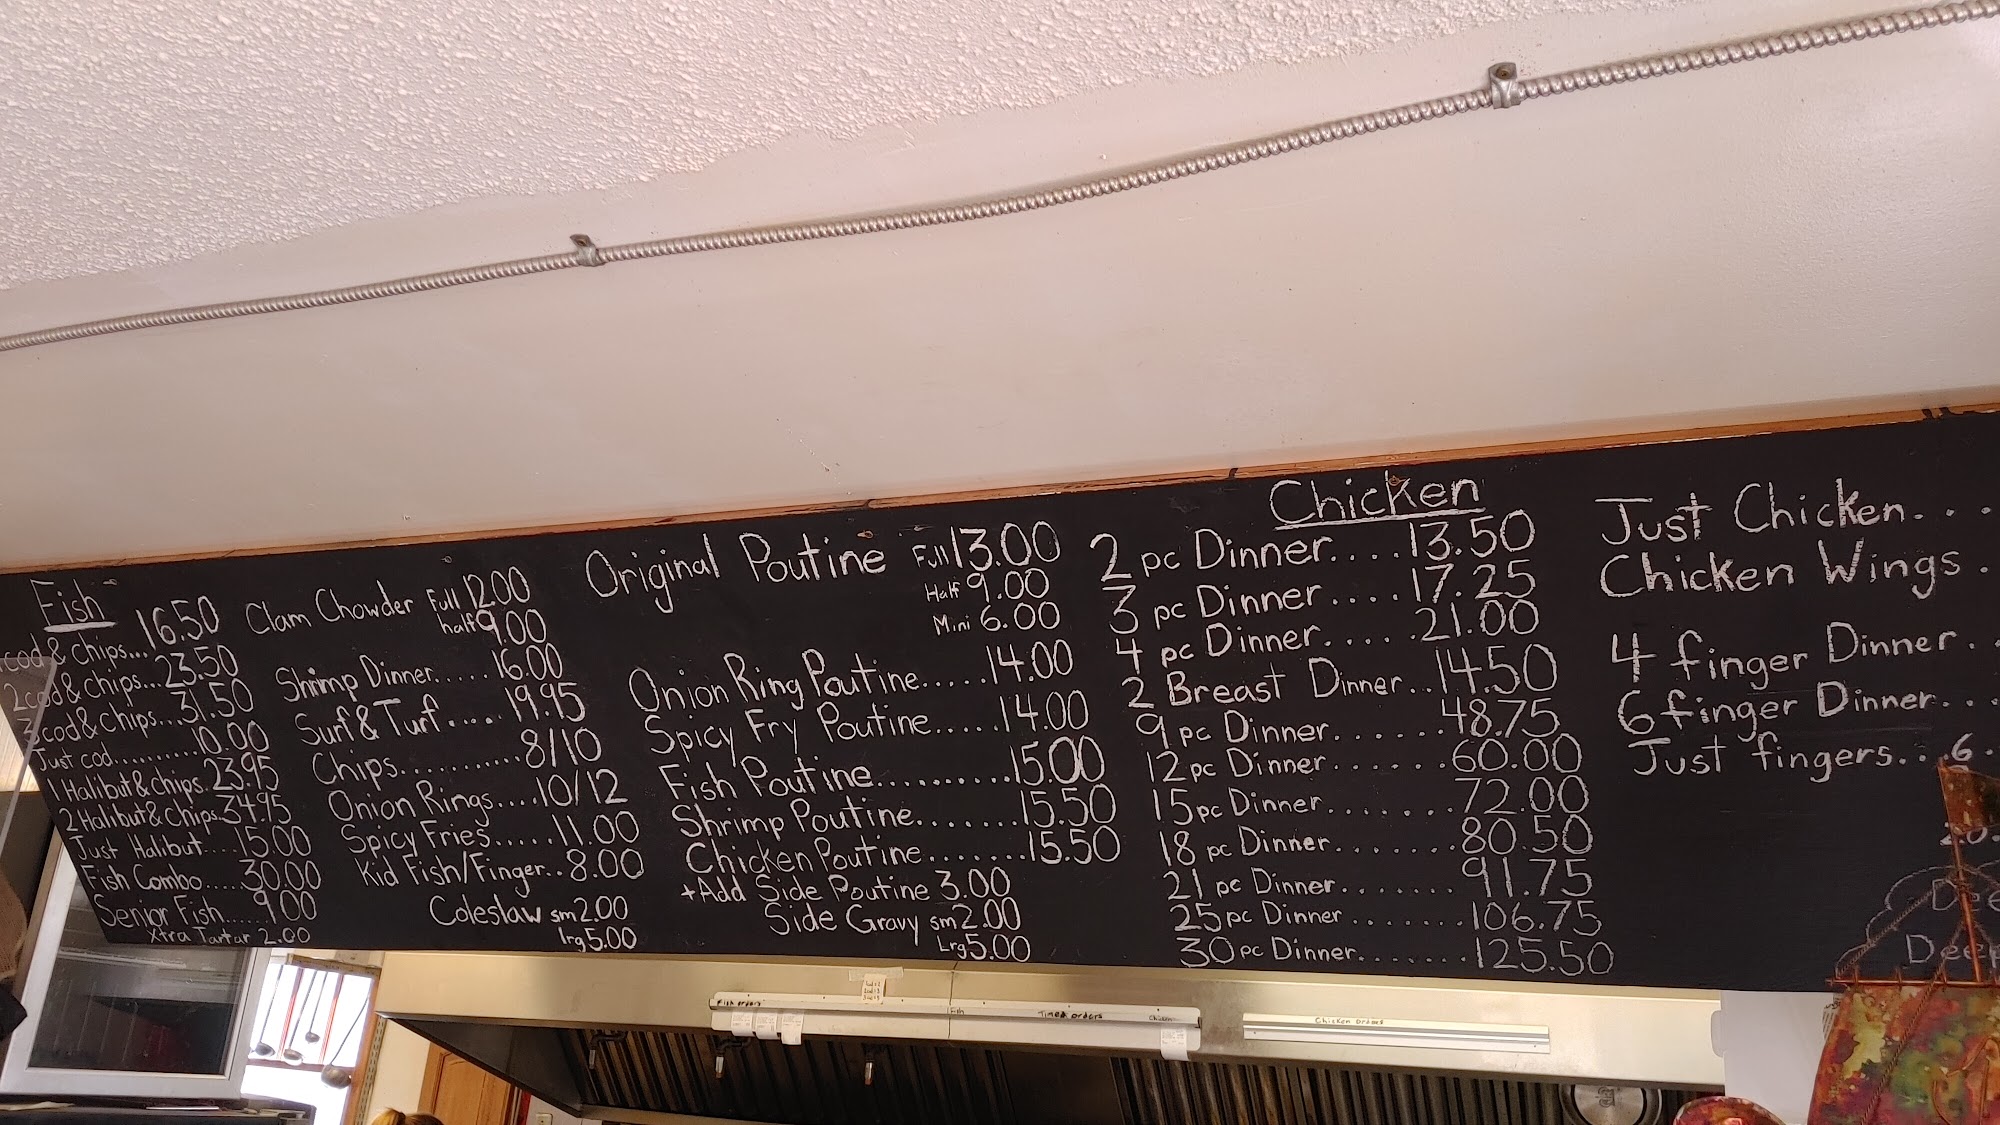 Fish
cod & chips... 16.50
2 cod & chips... 23.50
3 cod & chips... 31.50
Just cod......... 10.00
Halibut & chips. 23.95
2 Halibut & Chips. 34.95
Just Halibut.... 15.00
Fish Combo..... 30.00
Senior Fish...... 9.00
Xtra Tartar 2.00
Clam Chowder Full 12.00
half 9.00
Shrimp Dinner..... 16.00
Surf & Turf..... 19.95
Chips........... 8/10
Onion Rings.... 10/12
Spicy Fries..... 11.00
Kid Fish/Finger.. 8.00
Coleslaw sm 2.00
lrg 5.00
Original Poutine Full 13.00
Half 9.00
Mini 6.00
Onion Ring Poutine..... 14.00
Spicy Fry Poutine..... 14.00
Fish Poutine.......... 15.00
Shrimp Poutine........ 15.50
Chicken Poutine....... 15.50
+Add Side Poutine 3.00
Side Gravy sm 2.00
Lrg 5.00
Chicken
2 pc Dinner.... 13.50
3 pc Dinner.... 17.25
4 pc Dinner..... 21.00
2 Breast Dinner.. 14.50
9 pc Dinner...... 48.75
12 pc Dinner...... 60.00
15 pc Dinner....... 72.00
18 pc Dinner....... 80.50
21 pc Dinner....... 91.75
25 pc Dinner ....... 106.75
30 pc Dinner....... 125.50
Just Chicken...
Chicken Wings .
4 finger Dinner..
6 finger Dinner...
Just fingers... 6.
Dee
Deep
Fish orders
Fish
Timed orders
Chicken
Chicken orders